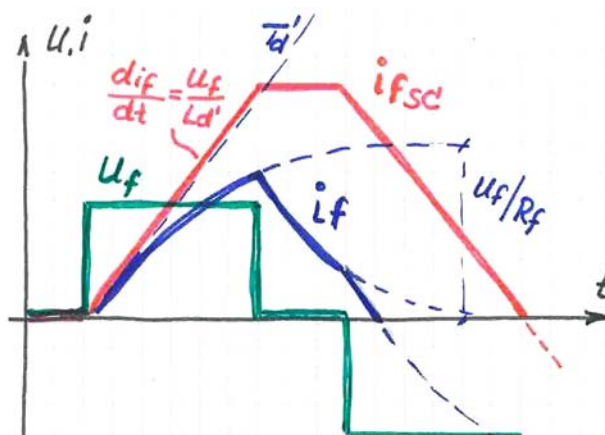 u,i
Ld'
dif/dt = uf/Ld'
ifsc
uf
if
uf/Rf
t